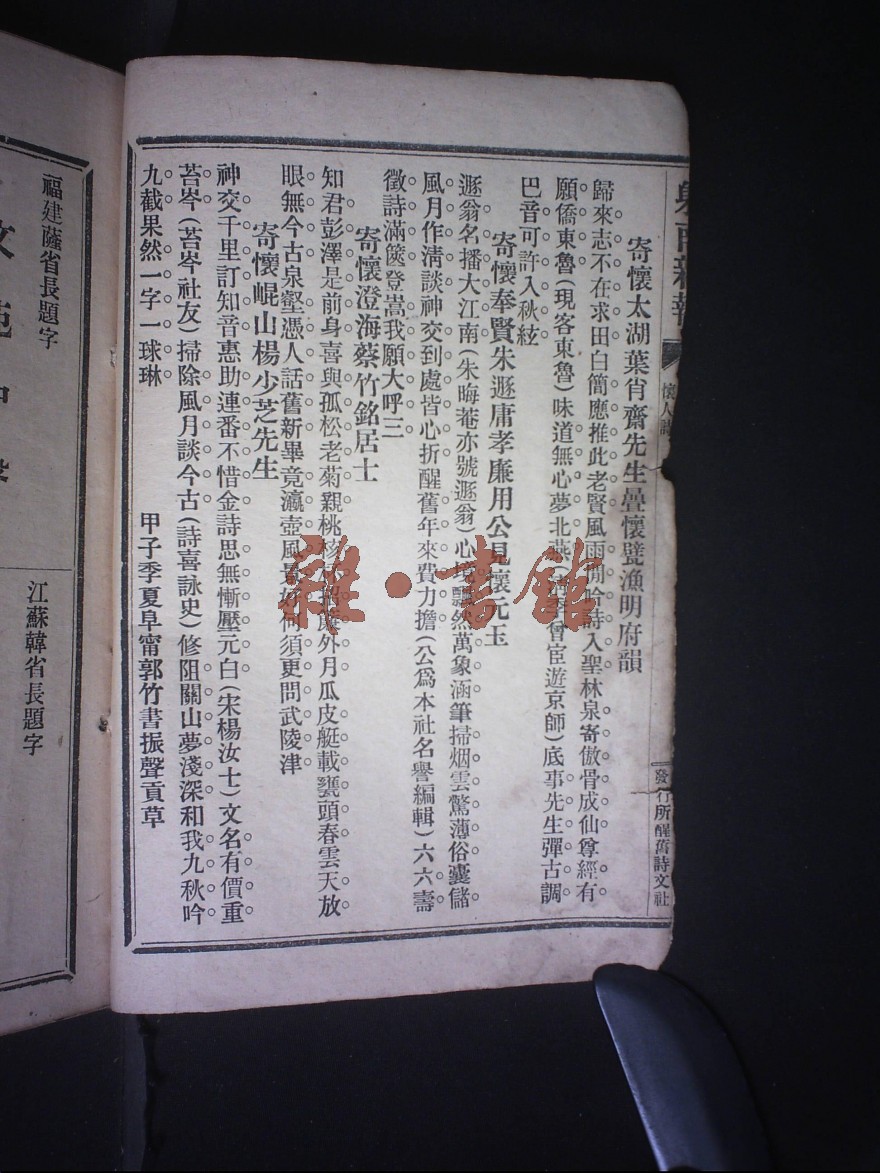 懷人詩
發行所醒舊詩文社
寄懷太湖葉肖齋先生疊懷甓漁明府韻
歸來志不在求田白簡應推此老賢風雨閒吟詩入聖林泉寄傲骨成仙尊經有
願僑東魯(現客東魯)味道無心夢北燕(會宦遊京師)底事先生彈古調
巴音可許入秋絃
寄懷奉賢朱遯庸孝廉用公見懷元玉
遯翁名播大江南(朱晦菴亦號遯翁)心境飄然萬象涵筆掃烟雲驚薄俗囊儲
風月作淸談神交到處皆心折醒舊年來費力擔(公爲本社名譽編輯)六六壽
徵詩滿篋登嵩我願大呼三
寄懷澄海蔡竹銘居士
知君彭澤是前身喜與孤松老菊親桃核簾外月瓜皮艇載甕頭春雲天放
眼無今古泉壑憑人話舊新畢竟瀛壺風景好何須更問武陵津
寄懷崐山楊少芝先生
神交千里訂知音惠助連番不惜金詩思無慚壓元白(宋楊汝士)文名有價重
苔岑(苔岑社友)掃除風月談今古(詩喜詠史)修阻關山夢淺深和我九秋吟
九截果然一字一球琳
甲子季夏阜甯郭竹書振聲貢草
福建薩省長題字
江蘇韓省長題字
雜·書館